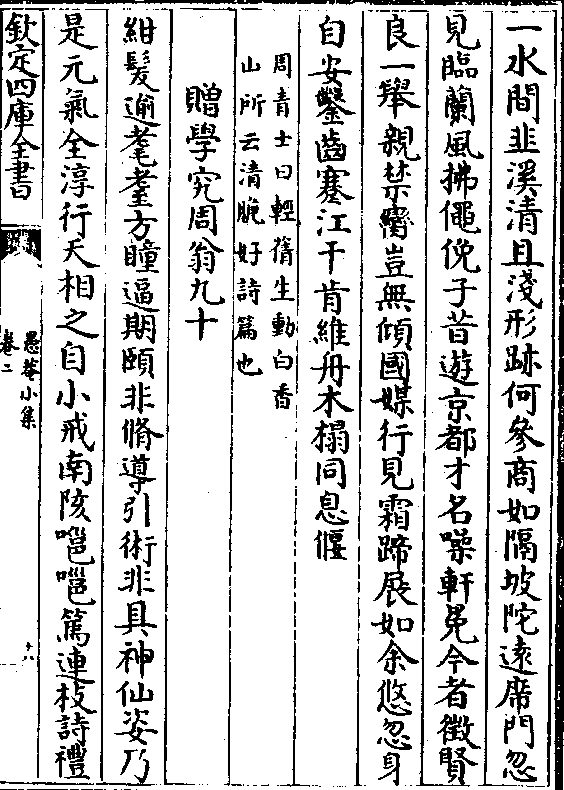 一水間韭溪清且淺形跡何參商如隔坡陀遠席門忽
見臨蘭風拂僶俛子昔遊京都才名噪軒冕今者徵賢
良一舉親禁臠豈無傾國媒行見霜蹄展如余悠忽身
自安鑿齒蹇江干肯維舟木榻同息偃
周青士曰輕蒨生動白香
山所云清脆好詩篇也
贈學究周翁九十
紺髮逾耄耋方瞳逼期頤非脩導引術非具神仙姿乃
是元氣全淳行天相之自小戒南陔嗈嗈篤連枝詩禮
欽定四庫全書
愚菴小集
卷二
十八